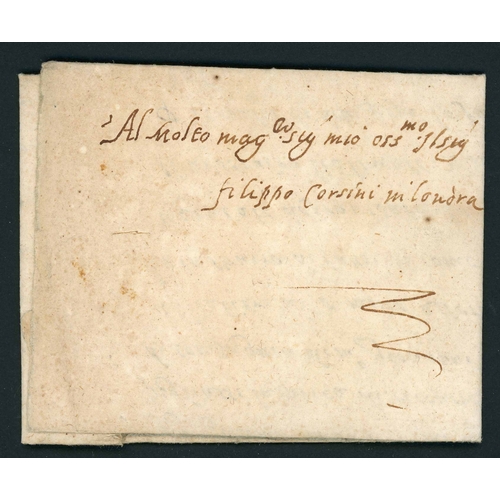 Al Molto mag.co sig.r mio oss.mo Il sig.r
filippo Corsini in londra